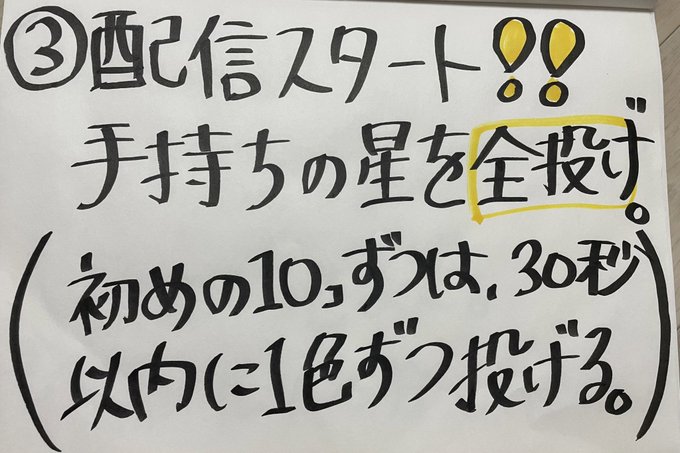 ③配信スタート!!
手持ちの星を全投げ。
(初めの10コずつは、30秒
以内に1色ずつ投げる。)